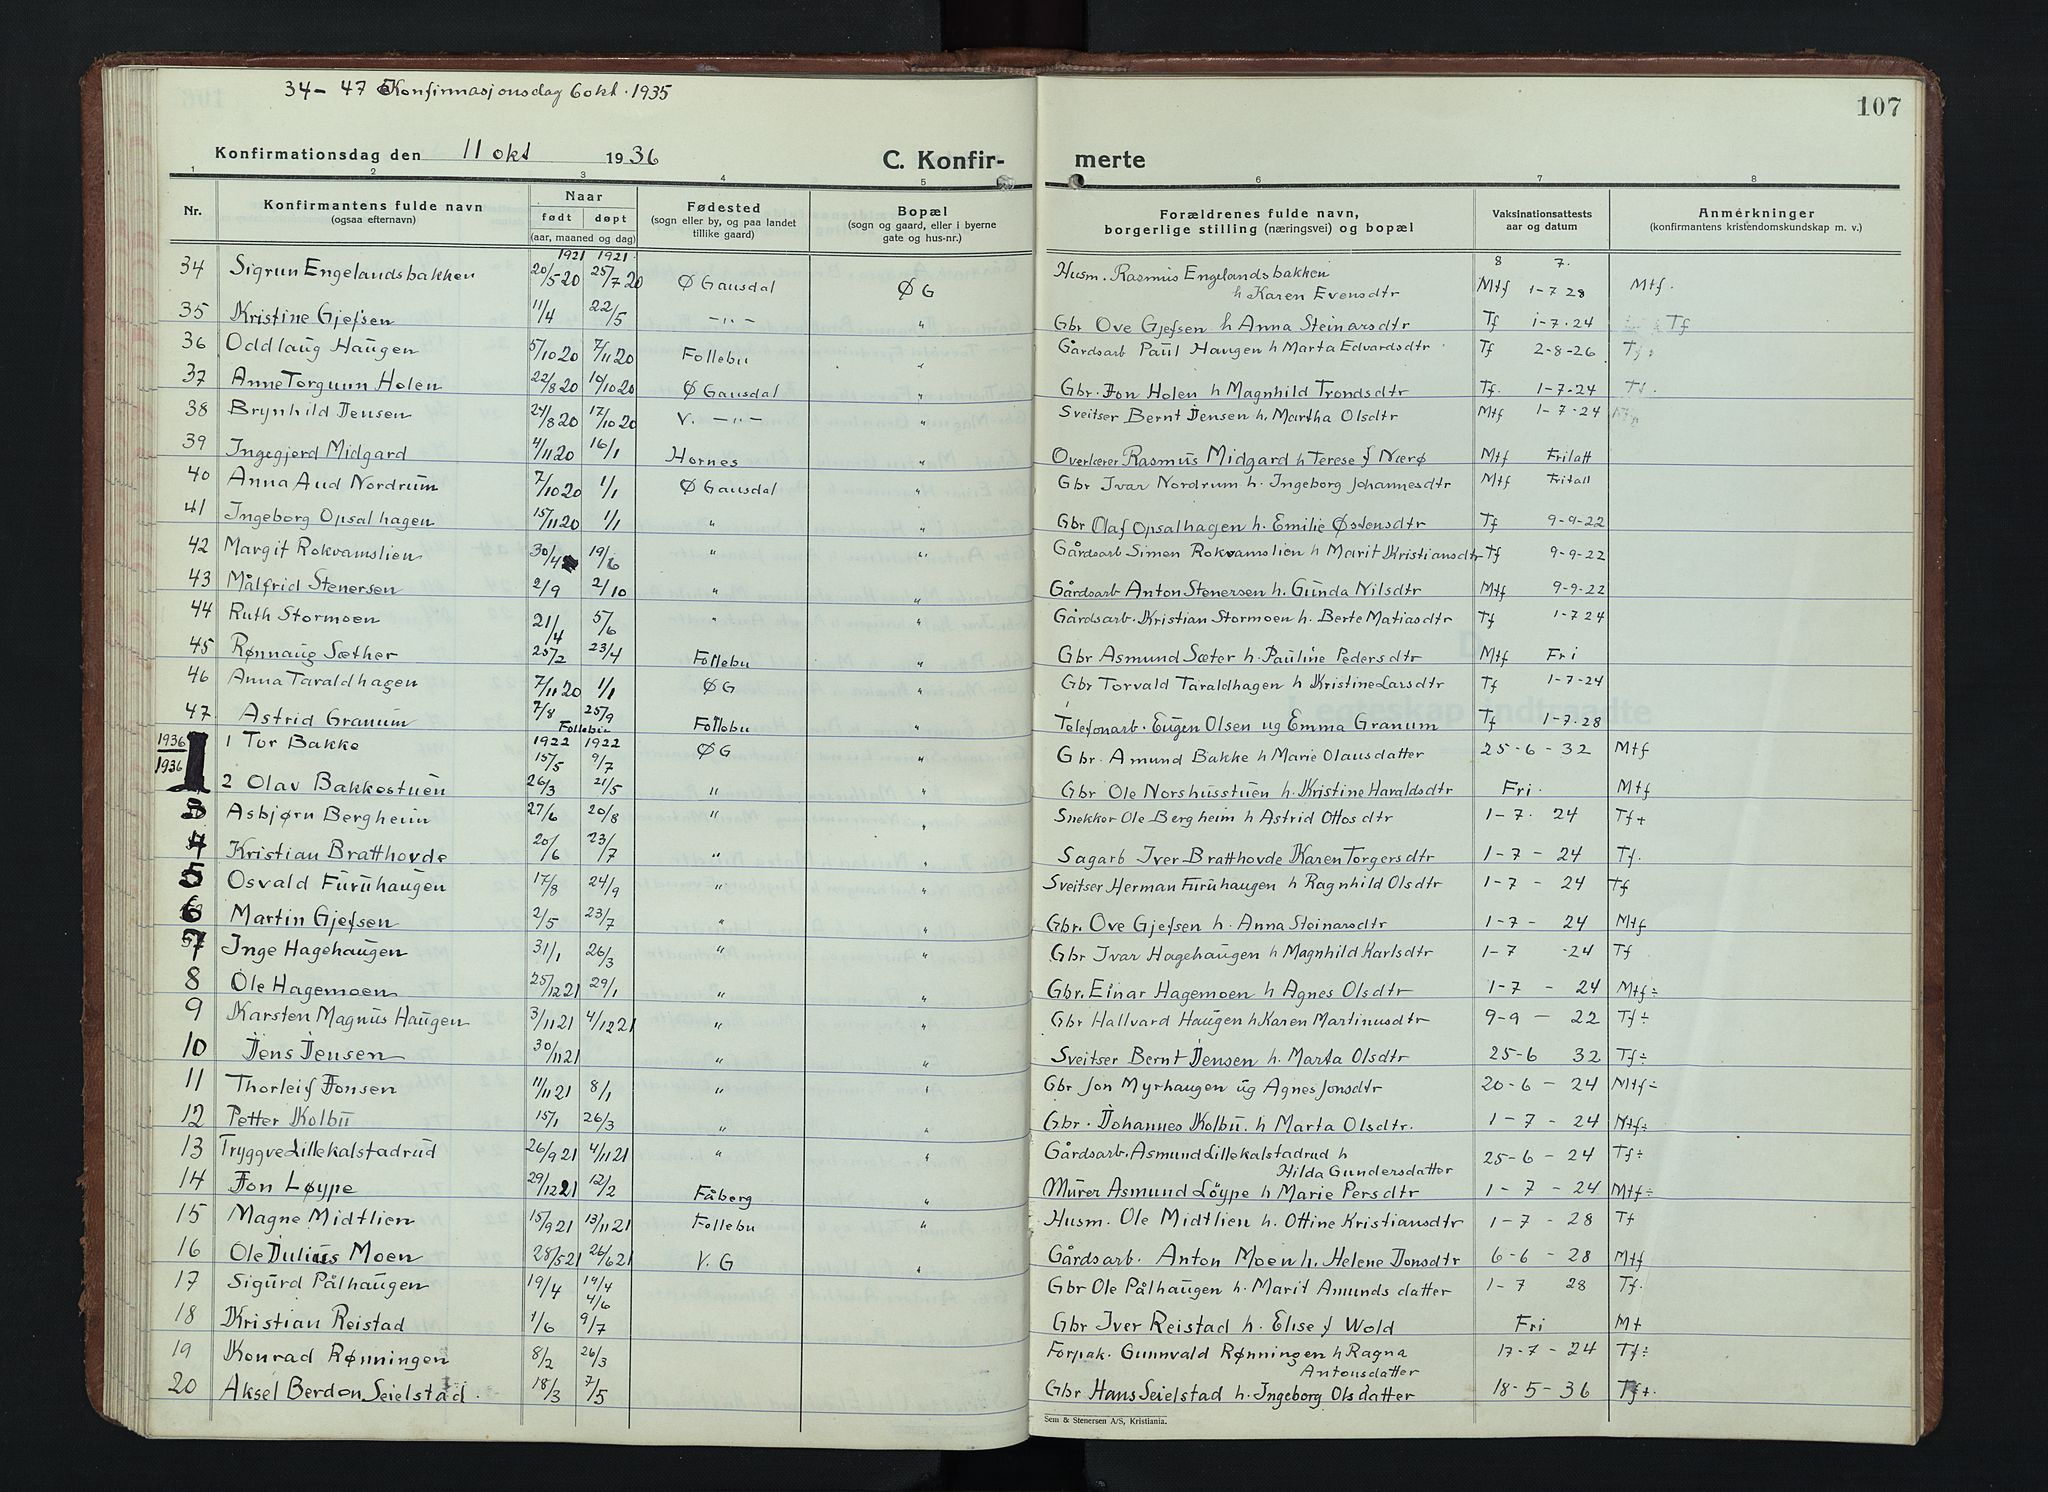 34 - 47 Konfirmasjonsdag 6 okt. 1935
107
Konfirmationsdag den 11 okt 1936 C. Konfir- merte
1 2 3 4 5 6 7 8
Nr. Konfirmantens fulde navn (ogsaa efternavn) Naar født døpt (aar, maaned og dag) Fødested (sogn eller by, og paa landet tillike gaard) Bopæl (sogn og gaard, eller i byerne gate og hus-nr.) Forældrenes fulde navn, borgerlige stilling (næringsvei) og bopæl Vaksinationsattests aar og datum Anmerkninger (konfirmantens kristendomskundskap m. v.)
1921 1921
34 Sigrun Engelandsbakken 20/5 20 25/7 20 Ø Gausdal ØG Husm. Rasmus Engelandsbakken h Karen Evensdtr Mtf 1-7 28 Mtf.
35 Kristine Gjefsen 11/4 22/5 -"- " Gbr Ove Gjefsen h Anna Steinarsdtr Tf 1-7-24 Tf
36 Oddlaug Haugen 5/10 20 7/11 20 Follebu " Gårdsarb Paul Haugen h Marta Edvardsdtr Tf 2-8-26 Tf÷
37 Anne Torgunn Holen 22/8 20 10/10 20 Ø Gausdal " Gbr. Jon Holen h Magnhild Trondsdtr Tf. 1-7-24 Tf.
38 Brynhild Jensen 24/8 20 17/10 20 V. -"- " Sveitser Bernt Jensen h. Martha Olsdtr Mtf 1-7-24
39 Ingegjerd Midgard 4/11 20 16/1 Hornes " Overlærer Rasmus Midgard h Terese f Nærø Mtf Fritatt
40 Anna Aud Nordrum 7/10 20 1/1 Ø Gausdal " Gbr Ivar Nordrum h. Ingeborg Johannesdtr Mtf Fritatt
41 Ingeborg Opsalhagen 15/11 20 1/1 " " Gbr Olaf Opsalhagen h. Emilie Østensdtr Tf 9-9-22
42 Margit Rokvamslien 30/4 19/6 " " Gårdsarb Simen Rokvamslien h Marit Kristiansdtr Tf 9-9-22
43 Målfrid Stenersen 2/9 2/10 " " Gårdsarb Anton Stenersen h. Gunda Nilsdtr Mtf 9-9-22
44 Ruth Stormoen 21/4 5/6 " " Gårdsarb. Kristian Stormoen h. Berte Matiasdtr Tf 1-7 24
45 Rønnaug Sæther 25/2 23/4 Follebu " Gbr Asmund Sæter h. Pauline Pedersdtr Mtf Fri
46 Anna Taraldhagen 7/11 20 1/1 ØG " Gbr Torvald Taraldhagen h Kristine Larsdtr Tf 1-7-24
47 Astrid Granum 7/8 25/9 Follebu Follebu " Telefonarb. Eugen Olsen ug Emma Granum Tf 1-7-28
1936 1 Tor Bakke 1922 15/5 1922 9/7 ØG " Gbr. Amund Bakke h Marie Olausdatter 25-6-32 Mtf
1936 2 Olav Bakkostuen 26/3 21/5 " " Gbr Ole Norshusstuen h. Kristine Haraldsdtr Fri. Mtf
3 Asbjørn Bergheim 27/6 20/8 " " Snekker Ole Bergheim h Astrid Ottosdtr 1-7. 24 Tf+
4 Kristian Bratthovde 20/6 23/7 " " Sagarb Iver Bratthovde Karen Torgersdtr 1-7 - 24 Tf.
5 Osvald Furuhaugen 17/8 24/9 " " Sveitser Herman Furuhaugen h Ragnhild Olsdtr 1-7 - 24 Tf
6 Martin Gjefsen 2/5 23/7 " " Gbr. Ove Gjefsen h. Anna Steinarsdtr 1-7- 24 Mtf
7 Inge Hagehaugen 31/1 26/3 " " Gbr Ivar Hagehaugen h Magnhild Karlsdtr 1-7 -24 Tf
8 Ole Hagemoen 25/12 21 29/1 " " Gbr. Einar Hagemoen h Agnes Olsdtr 1-7 - 24 Mtf÷
9 Karsten Magnus Haugen 3/11 21 4/12 21 " " Gbr Hallvard Haugen h Karen Martinusdtr 9-9 - 22 Tf÷
10 Jens Jensen 30/11 21 " " Sveitser Bernt Jensen h. Marta Olsdtr 25-6 32 Tf÷
11 Thorleif Jonsen 11/11 21 8/1 " " Gbr Jon Myrhaugen ug Agnes Jonsdtr 20-6 - 24 Mtf÷
12 Petter Kolbu 15/1 26/3 " " Gbr. Johannes Kolbu. h Marta Olsdtr. 1-7 - 24 Mtf÷
13 Tryggve Lillekalstadrud 26/9 21 4/11 21 " " Gårdsarb. Asmund Lillekalstadrud h Hilda Gundersdatter 25-6 - 24 Tf÷
14 Jon Løype 29/12 21 12/2 Fåberg " Murer Asmund Löype h Marie Persdtr 1-7 - 24 Mtf÷
15 Magne Midtlien 15/9 21 13/11 21 Follebu " Husm. Ole Midtlien h. Ottine Kristiansdtr 1-7 - 28 Tf
16 Ole Julius Moen 28/5 21 26/6 21 V. G " Gårdsarb. Anton Moen h. Helene Jonsdtr 6-6 - 28 Mtf
17 Sigurd Pålhaugen 19/4 4/6 Gbr Ole Pålhaugen h. Marit Amundsdatter 1-7 28 Tf.
18 Kristian Reistad 1/6 9/7 Gbr Iver Reistad h. Elise f Wold Fri Mt
19 Konrad Rønningen 8/2 26/3 Forpak. Gunnvald Rønningen h Ragna Antonsdatter 17-7 - 24 Tf÷
20 Aksel Berdon Seielstad. 18/3 7/5 Gbr Hans Seielstad h. Ingeborg Olsdatter 18-5-36 Tf+.
Sem & Stenersen A/S, Kristiania.